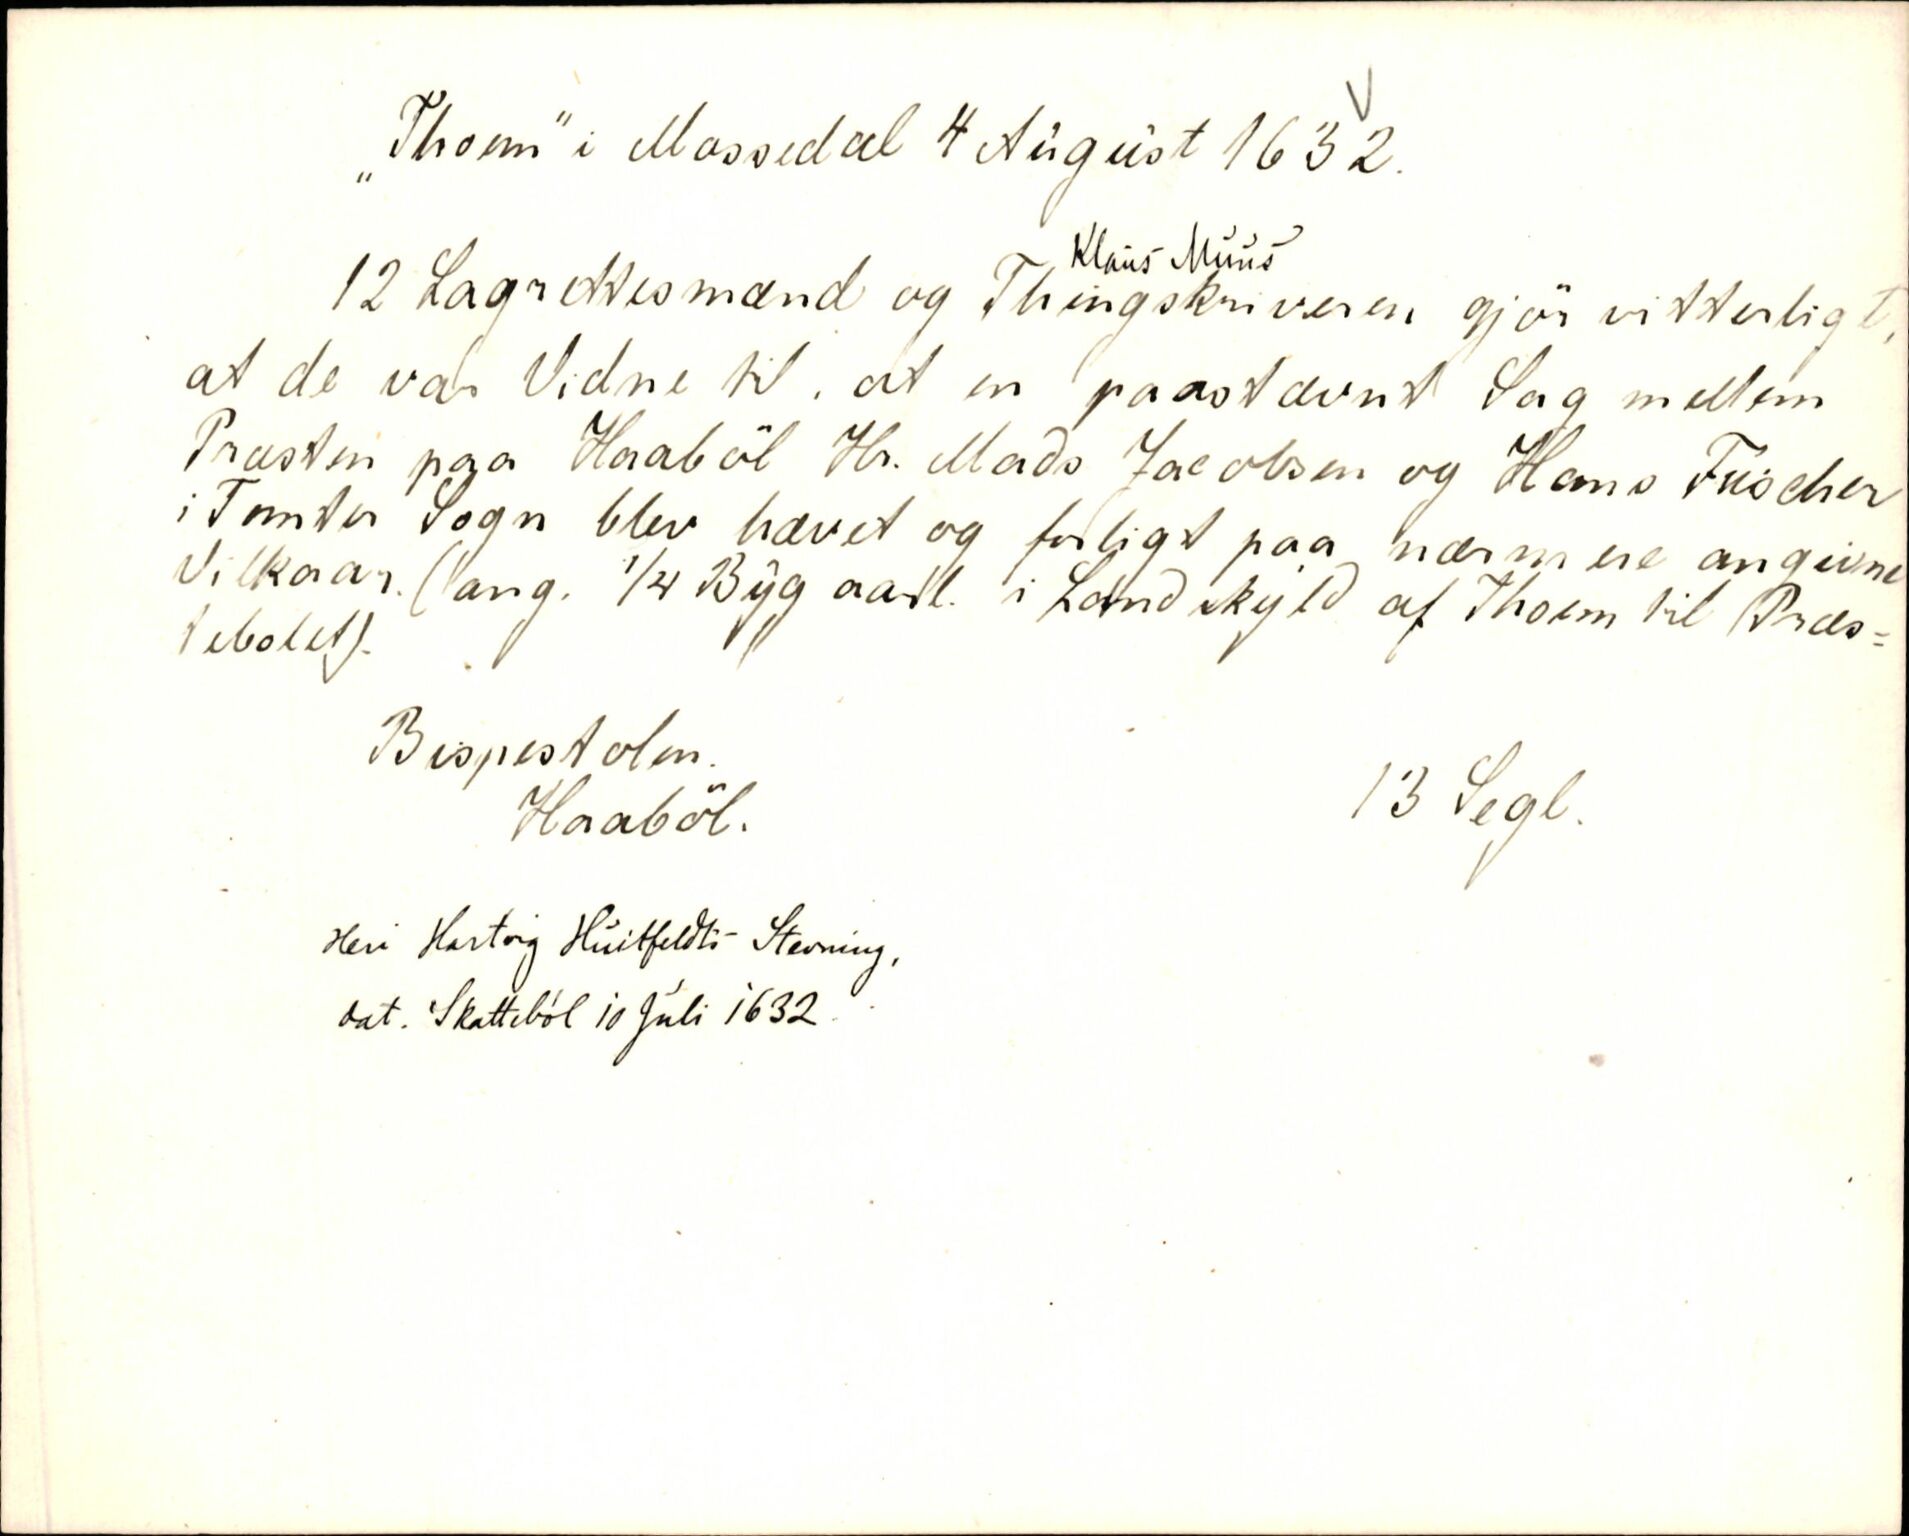 „Thoem" i Mossedal 4 August 1632.
Klaus Muus
12 Lagrettesmænd og Thingskriveren gjör vitterligt,
at de var Vidne til, at en paastævnt Sag mellem
Præsten paa Haaböl Hr. Mads Jacobsen og Hans Füscher
i Tomter Sogn blev hævet og forligt paa nærmere angivne
Vilkaar. (ang. 1/4 Byg aarl. i Landskyld af Thoem til Præs=
tebolet).
Bispestolen.
Haaböl.
13 Segl.
Heri Hartvig Huitfeldts Stevning,
dat. Skatteböl 10 Juli 1632.